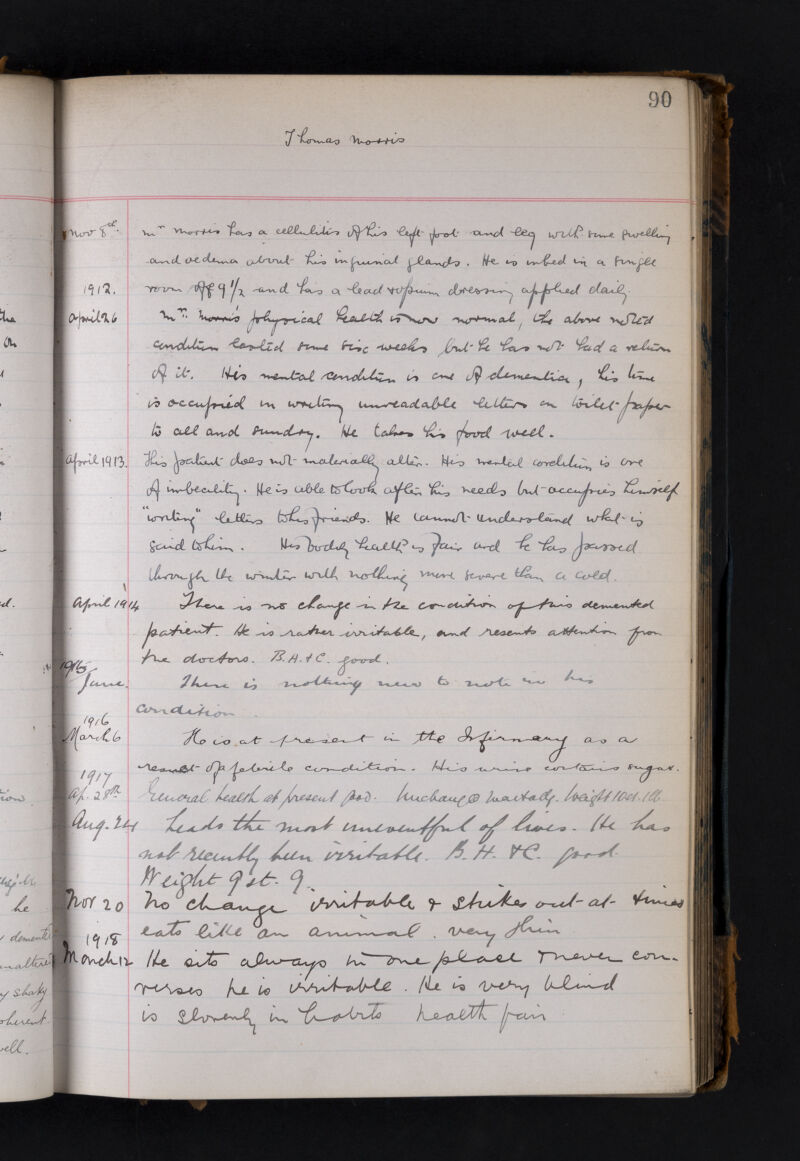 90
Thomas Morris
Nov 8th. Mr Morris has a cellulitis of his left foot and leg with some swelling
and oedema about his inguinal glands. He is in bed in a single
1912. room of G 9 1/2 and has a lead & opium dressing applied daily
April 26 Mr. Morris's physical health is now normal, the above noted
condition lasted some six weeks but he has not had a return
of it. His mental condition is one of dementia, his time
is occupied in writing unreadable letters on toilet paper
to all and sundry. He takes his food well.
April 1913. This patient does not materially alter. His mental condition is one
of imbecility. He is able to look after his needs but occupies himself
"writing" letters to his friends. He cannot understand what is
said to him. His bodily health is fair and he has passed
through the winter with nothing more severe than a cold.
April 1914 There is no change in the condition of this demented
patient. He is rather irritable, and resents attention from
the doctors. B.H. & C. good.
1915
June. There is nothing new to note in his
condition.
1916
March 6 He is at present in the Infirmary as a
result of a febrile condition. His urine contains sugar.
1917
Ap. 28th General health at present good. Unchanged mentally. Weight 10st. 1lb.
Aug. 24 Leads the most uneventful of lives. He has
not recently been irritable. B. H. & C. good.
Weight 9 st. 9.
Nov 20 No change irritable & strikes out at times
eats like an animal. very thin
1918
March 12 He sits always in one place & never con-
verses he is irritable. He is very blind
is slovenly in habits health fair